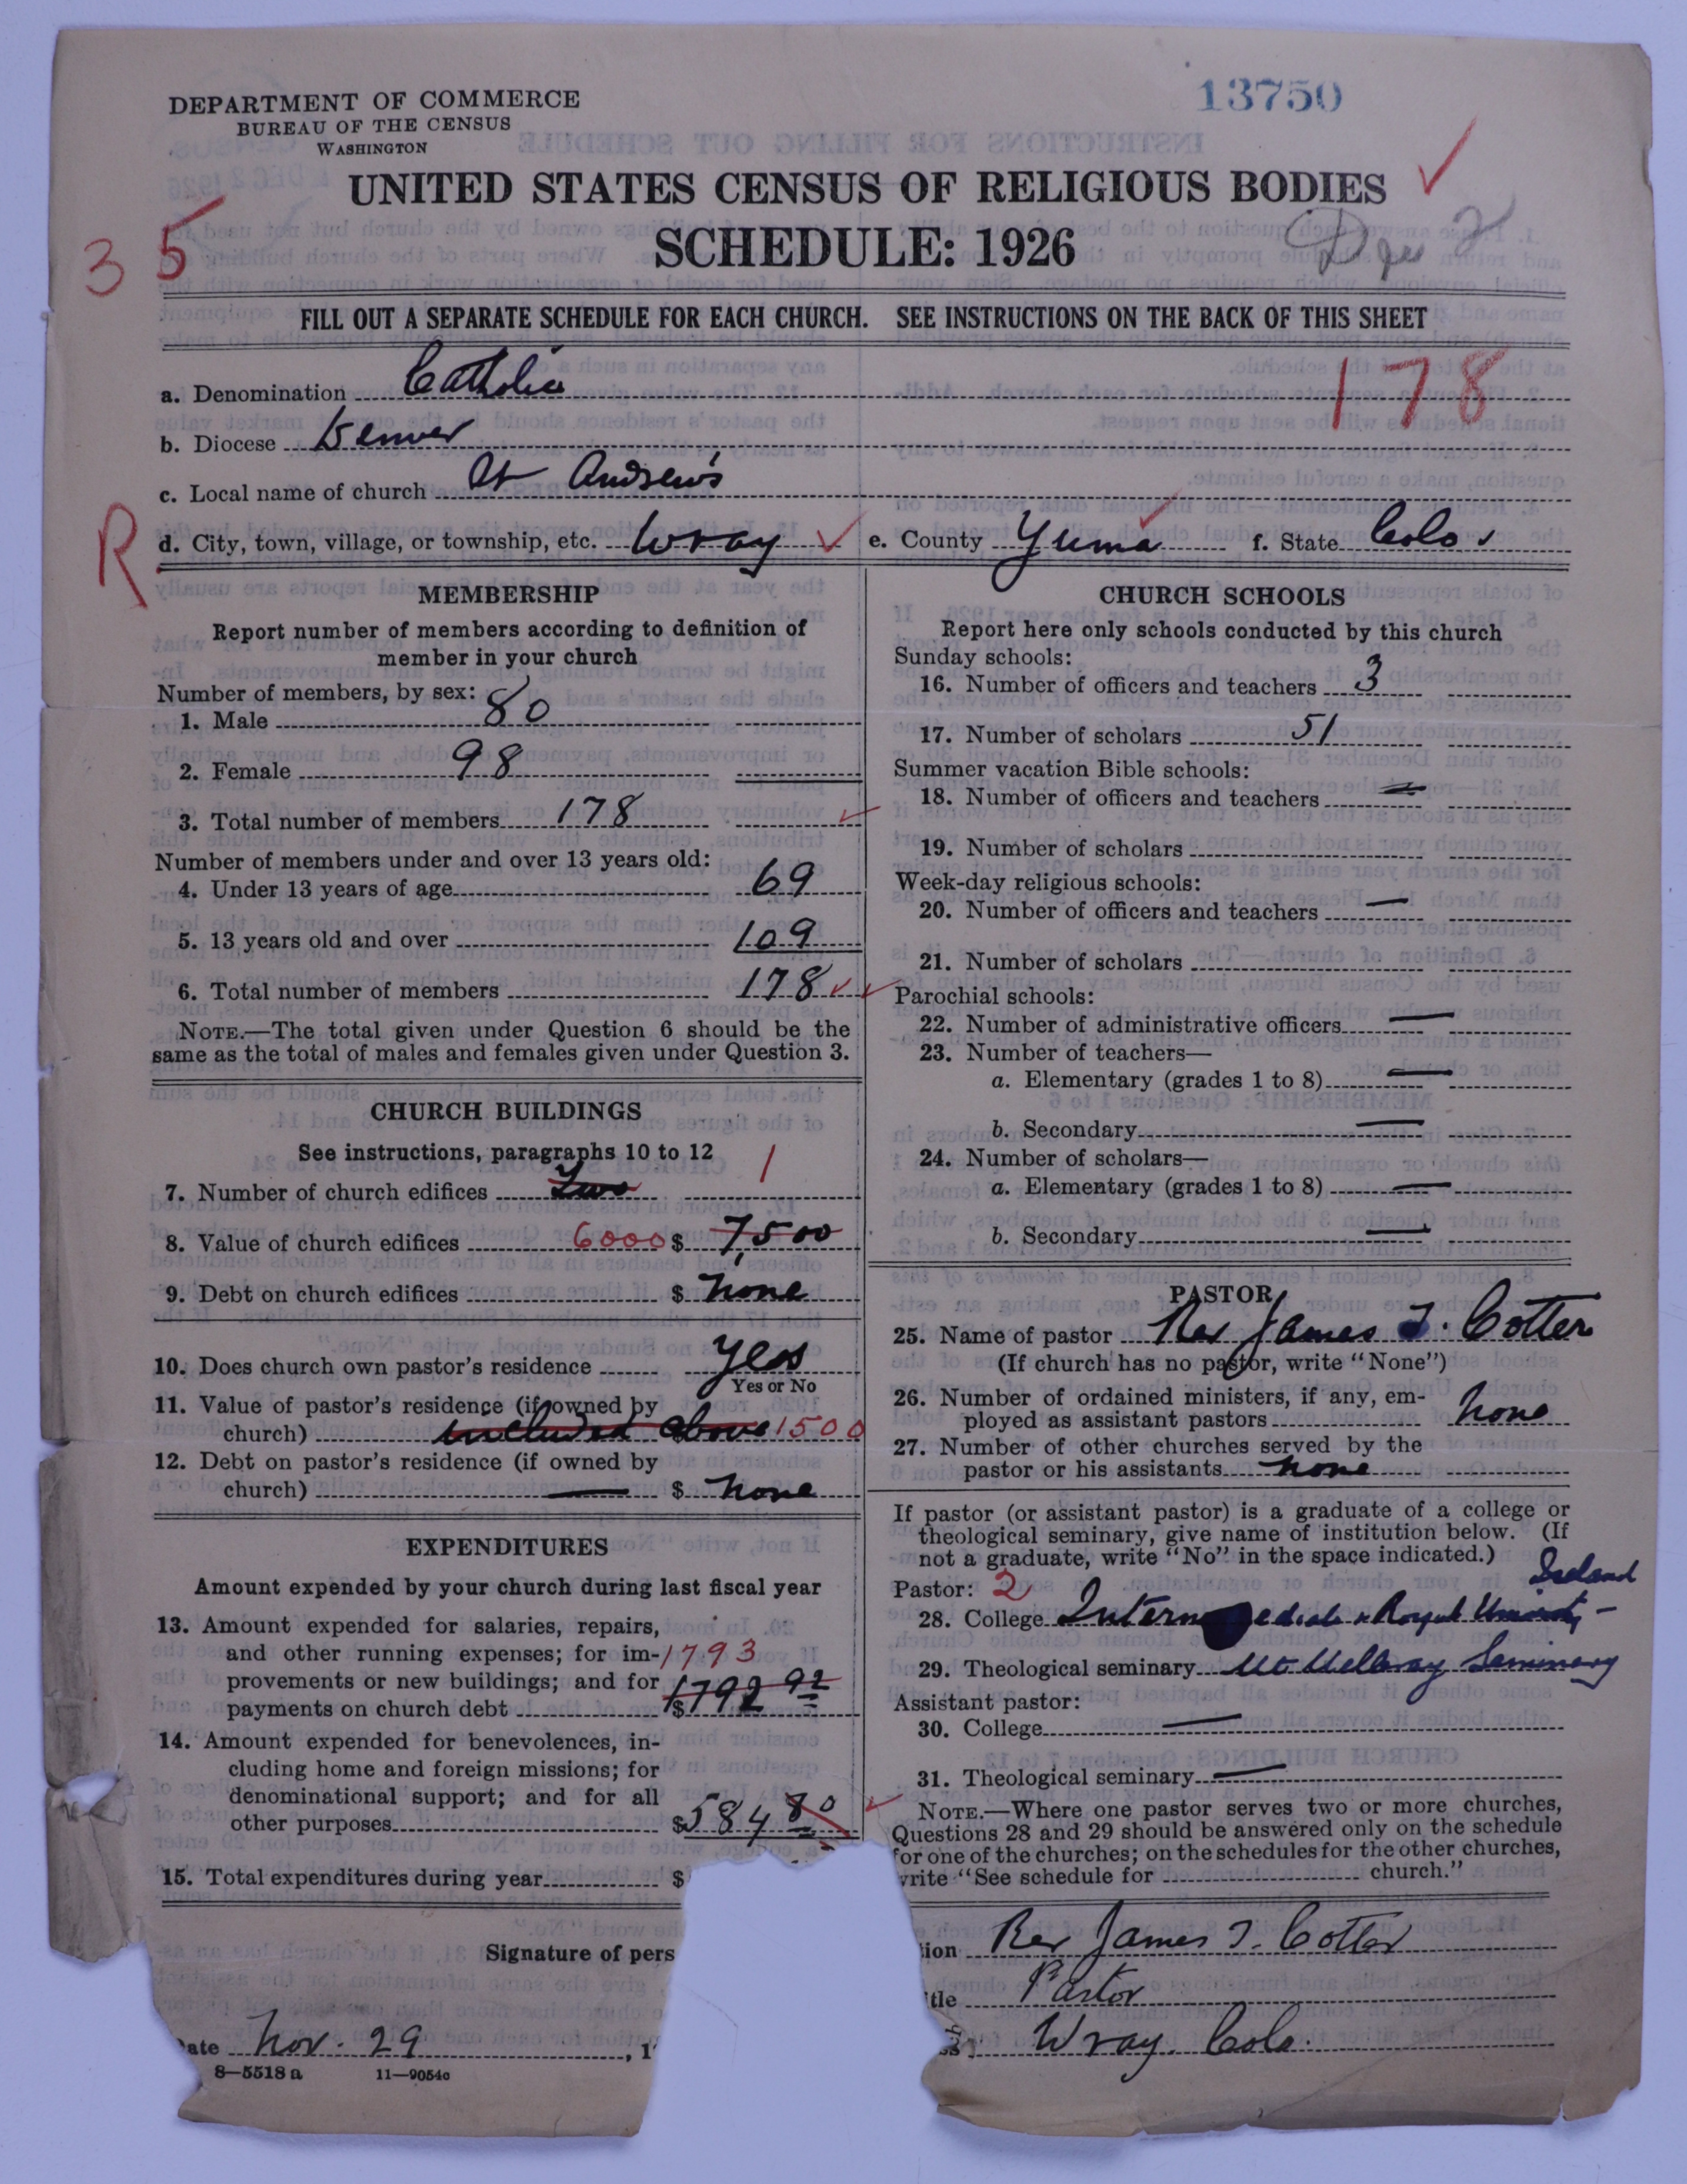 13750
DEPARTMENT OF COMMERCE
BUREAU OF THE CENSUS
WASHINGTON
UNITED STATES CENSUS OF RELIGIOUS BODIES
SCHEDULE: 1926
35
FILL OUT A SEPARATE SCHEDULE FOR EACH CHURCH. SEE INSTRUCTIONS ON THE BACK OF THIS SHEET
178
a. Denomination Catholic
b. Diocese Denver
c. Local name of church St Andrew's
R
d. City, town, village, or township, etc. Wray e. County Yuma f. State Colo
MEMBERSHIP
Report number of members according to definition of
member in your church
Number of members, by sex:
1. Male 80
2. Female 98
3. Total number of members 178
Number of members under and over 13 years old:
4. Under 13 years of age 69
5. 13 years old and over 109
6. Total number of members 178
NOTE.—The total given under Question 6 should be the
same as the total of males and females given under Question 3.
CHURCH BUILDINGS
See instructions, paragraphs 10 to 12
7. Number of church edifices Two 1
8. Value of church edifices 6000 $ 7,500
9. Debt on church edifices $ None
10. Does church own pastor's residence Yes
Yes or No
11. Value of pastor's residence (if owned by
church) included above 1500
12. Debt on pastor's residence (if owned by
church) — $ None
EXPENDITURES
Amount expended by your church during last fiscal year
13. Amount expended for salaries, repairs,
and other running expenses; for im- 1793
provements or new buildings; and for
payments on church debt $1792 92
14. Amount expended for benevolences, in-
cluding home and foreign missions; for
denominational support; and for all
other purposes $584 80
15. Total expenditures during year $
CHURCH SCHOOLS
Report here only schools conducted by this church
Sunday schools:
16. Number of officers and teachers 3
17. Number of scholars 51
Summer vacation Bible schools:
18. Number of officers and teachers —
19. Number of scholars
Week-day religious schools:
20. Number of officers and teachers —
21. Number of scholars
Parochial schools:
22. Number of administrative officers —
23. Number of teachers—
a. Elementary (grades 1 to 8) —
b. Secondary —
24. Number of scholars—
a. Elementary (grades 1 to 8) —
b. Secondary —
PASTOR
25. Name of pastor Rev James J. Cotter
(If church has no pastor, write "None")
26. Number of ordained ministers, if any, em-
ployed as assistant pastors None
27. Number of other churches served by the
pastor or his assistants None
If pastor (or assistant pastor) is a graduate of a college or
theological seminary, give name of institution below. (If
not a graduate, write "No" in the space indicated.)
Pastor: 2 Ireland
28. College Intermediate & Royal University —
29. Theological seminary Mt Melleray Seminary
Assistant pastor:
30. College —
31. Theological seminary —
NOTE.—Where one pastor serves two or more churches,
Questions 28 and 29 should be answered only on the schedule
for one of the churches; on the schedules for the other churches,
write "See schedule for church."
Signature of pers
tion Rev James J. Cotter
itle Pastor
Wray, Colo.
ate Nov. 29, 1
8—5518 a 11—9054c